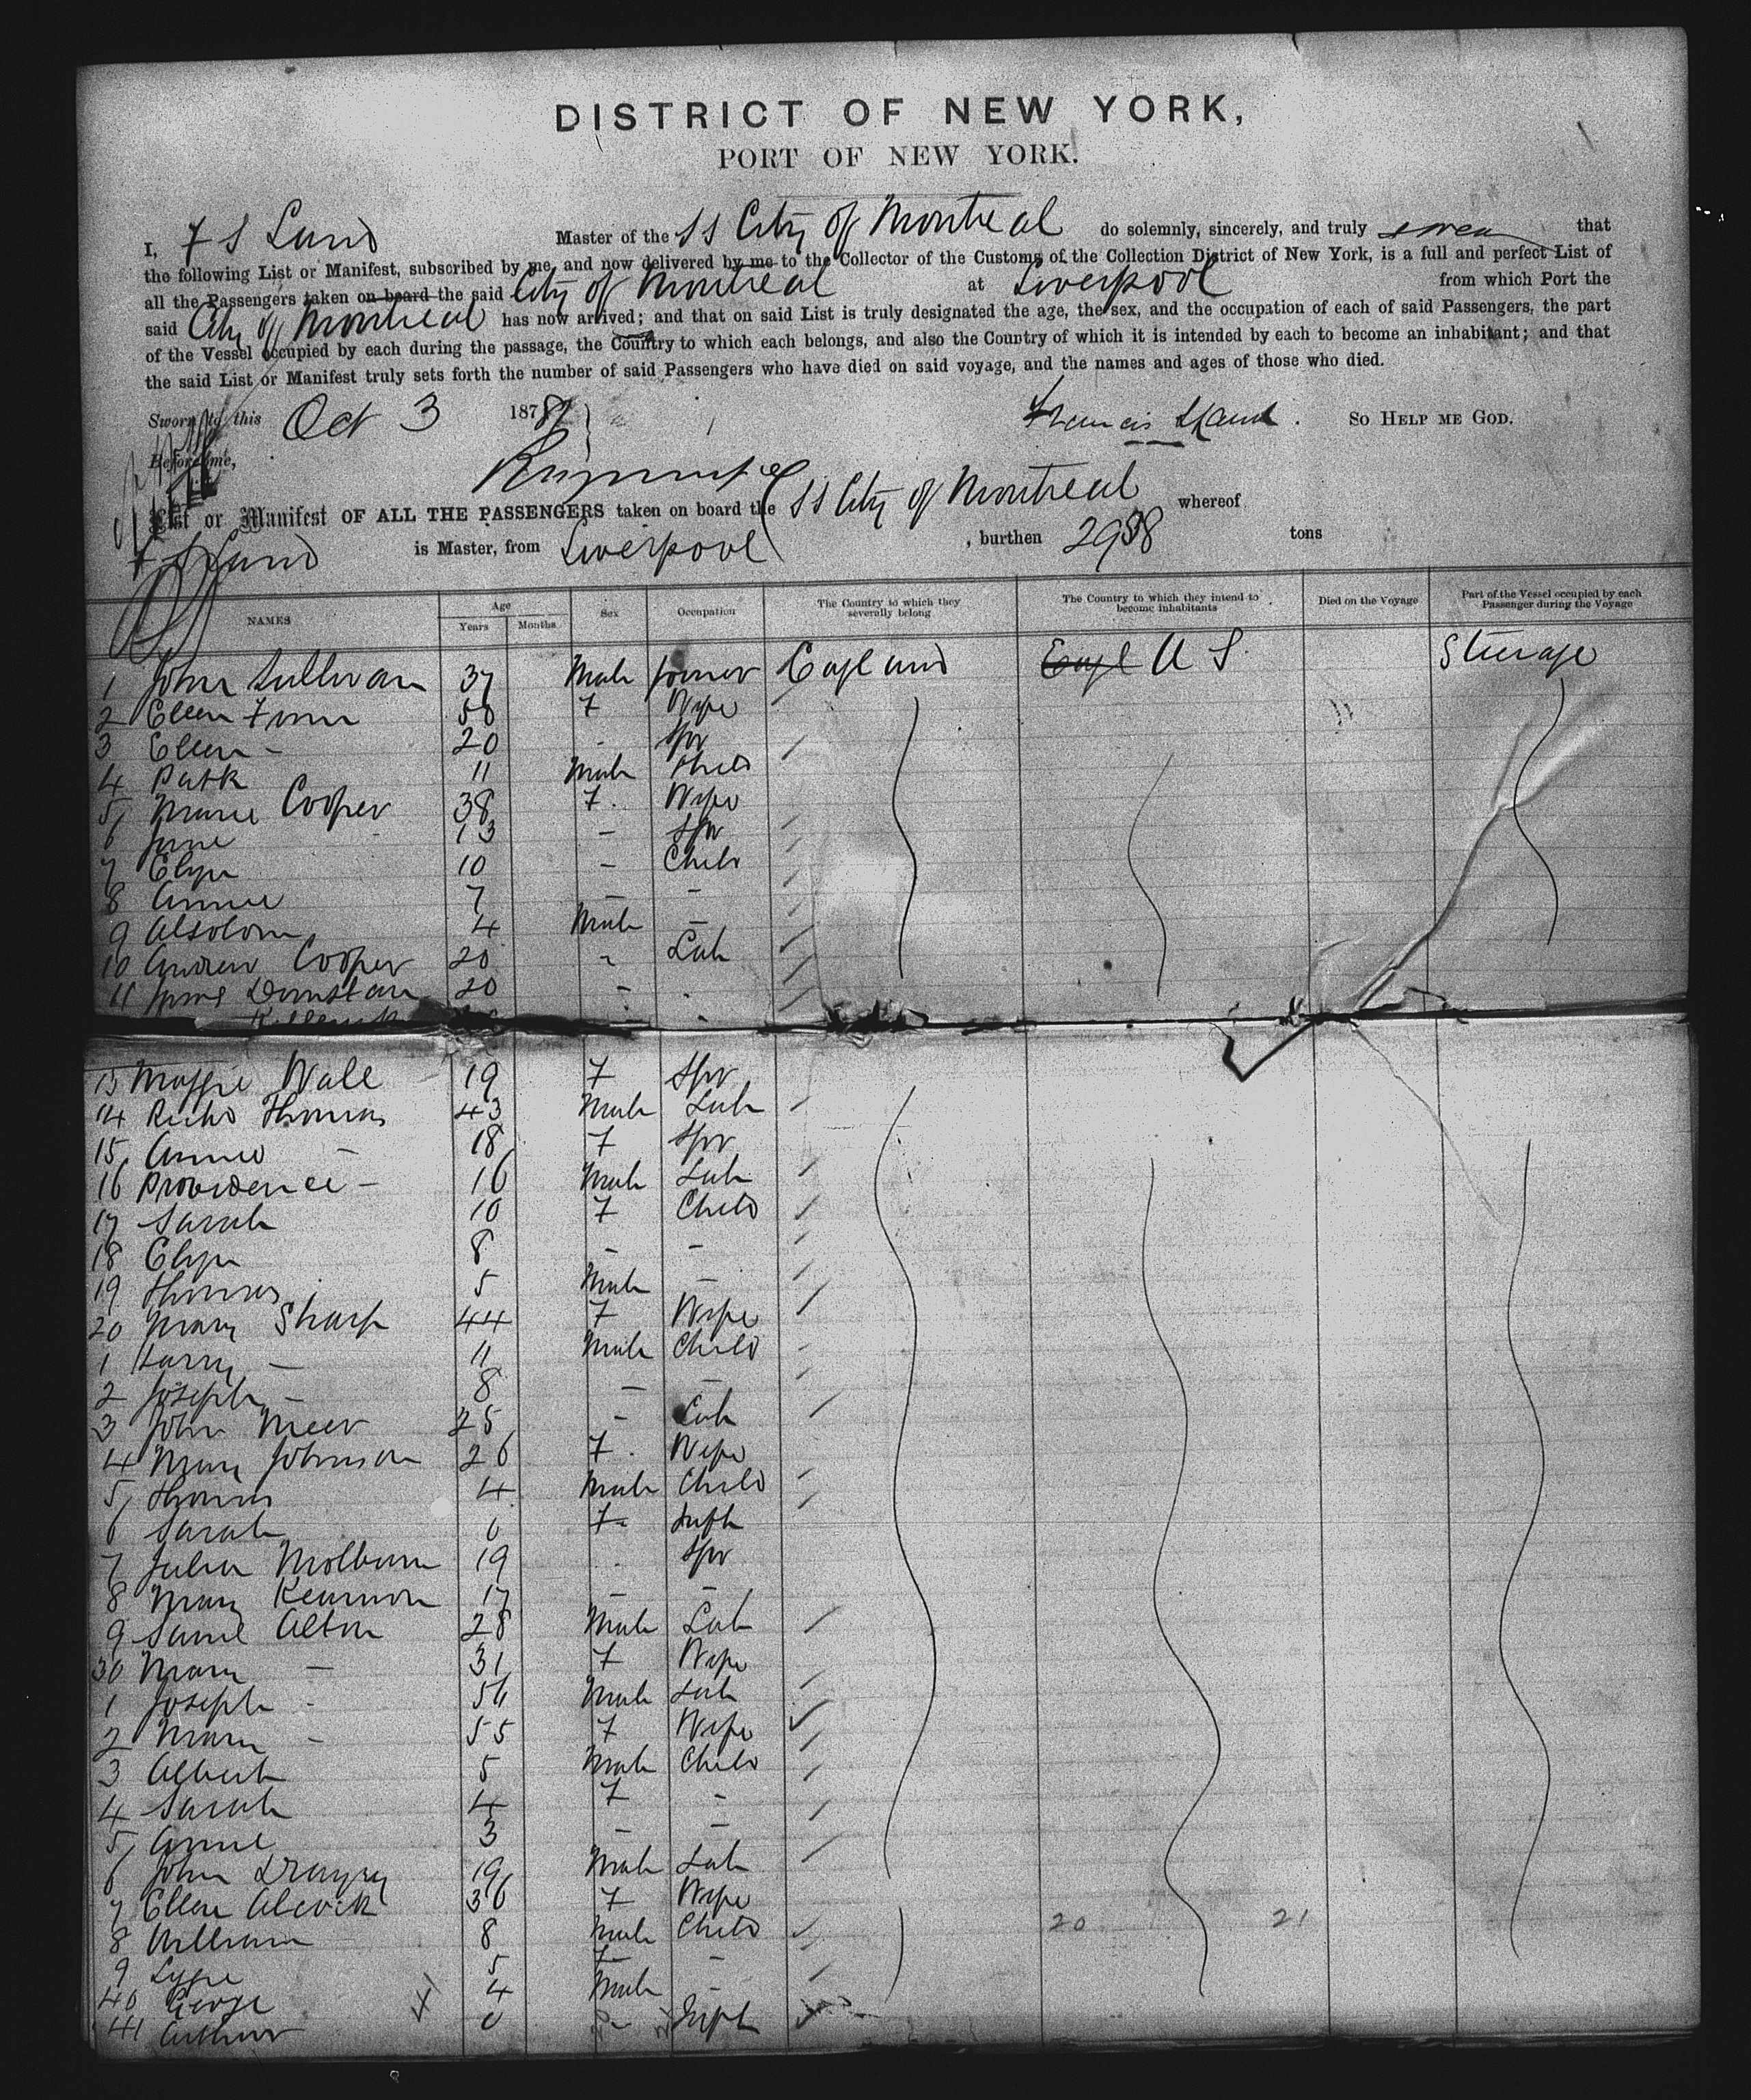 DISTRICT OF NEW YORK,
PORT OF NEW YORK.
I, F S Land Master of the SS City of Montreal do solemnly, sincerely, and truly swear that
the following List or Manifest, subscribed by me, and now delivered by me to the Collector of the Customs of the Collection District of New York, is a full and perfect List of
all the Passengers taken on board the said City of Montreal at Liverpool from which Port the
said City of Montreal has now arrived; and that on said List is truly designated the age, the sex, and the occupation of each of said Passengers, the part
of the Vessel occupied by each during the passage, the Country to which each belongs, and also the Country of which it is intended by each to become an inhabitant; and that
the said List or Manifest truly sets forth the number of said Passengers who have died on said voyage, and the names and ages of those who died.
Sworn to this Oct 3 187 Francis S Land. SO HELP ME GOD.
Before me,
List or Manifest OF ALL THE PASSENGERS taken on board the SS City of Montreal whereof
F S Land is Master, from Liverpool , burthen 2938 tons
NAMES Age Years Months Sex Occupation The Country to which they severally belong The Country to which they intend to become inhabitants Died on the Voyage Part of the Vessel occupied by each Passenger during the Voyage
1 John Sullivan 37 Male England Engl U S Steerage
2 Ellen Finn 50 F Wife
3 Ellen - 20 - Spr
4 Patk 11 Male Child
5 Marie Cooper 38 F. Wife
6 Jane 13 - Spr
7 Eliza 10 - Child
8 Annie 7 - -
9 Absolom 4 Male -
10 Andrew Cooper 20 " Lab
11 Dunstan 20 -
13 Maggie Wall 19 F Spr
14 Richd Thomas 43 Male Lab
15 Annie - 18 F Spr
16 Providence - 16 Male Lab
17 Sarah 10 F Child
18 Eliza 8 - -
19 Thomas 5 Male -
20 Mary Sharp 44 F Wife
1 Harry - 11 Male Child
2 Joseph - 8 - -
3 John Meer 25 - Lab
4 Mary Johnson 26 F. Wife
5 Thomas 4 Male Child
6 Sarah 0 F Inft
7 Julia 19 Spr
8 Mary 17 - -
9 Saml Alton 28 Male Lab
30 Mary - 31 F Wife
1 Joseph - 56 Male Lab
2 Mary - 55 F Wife
3 Albert 5 Male Child
4 Sarah 4 F -
5 Annie 3 - -
6 John 19 Male Lab
7 Ellen Alcock 36 F Wife
8 William 8 Male Child 20 21
9 5 F -
40 George 4 Male -
41 Arthur 0 - Inft